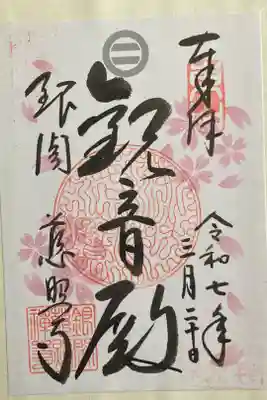 奉拝
令和七年
三月二十日
観音殿
銀閣
慈照寺